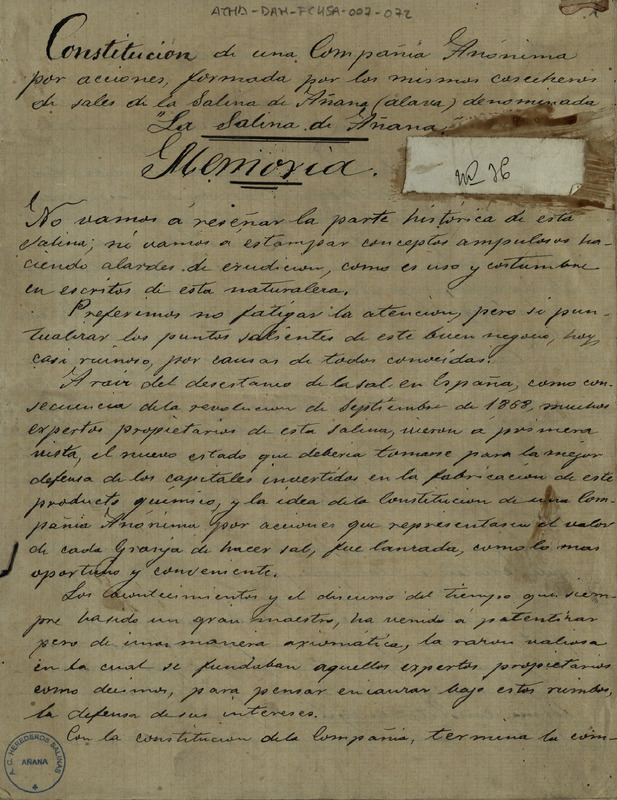 ATHA-DAH-FCHSA-007-072
Constitución de una Compañia Anónima
por acciones, formada por los mismos cosecheros
de sales de la Salina de Añana (alava) denominada
"La Salina de Añana."
Memoria.
Nº 16
No vamos á reseñar la parte histórica de esta
Salina; ni vamos a estampar conceptos ampulosos ha-
ciendo alardes de erudicion, como es uso y costumbre
en escritos de esta naturaleza.
Preferimos no fatigar la atencion, pero si pun-
tualizar los puntos salientes de este buen negocio, hoy
casi ruinoso, por causas de todos conocidas.
A raiz del desestanco de la sal en España, como con-
secuencia de la revolucion de Septiembre de 1868, muchos
expertos propietarios de esta Salina, vieron a primera
vista, el nuevo estado que deberia tomarse para la mejor
defensa de los capitales invertidos en la fabricacion de este
producto quimico, y la idea de la Constitucion de una Com-
pañia Anónima por acciones que representasen el valor
de cada Granja de hacer sal, fue lanzada, como lo mas
oportuno y conveniente.
Los acontecimientos y el discurso del tiempo que siem-
pre ha sido un gran maestro, ha venido á patentizar
pero de una manera axiomatica, la razon valiosa
en la cual se fundaban aquellos expertos propietarios
como decimos, para pensar encauzar bajo estos rumbos,
la defensa de sus intereses.
Con la constitucion de la Compañia, termina la com-
A.C. HEREDEROS SALINAS
AÑANA